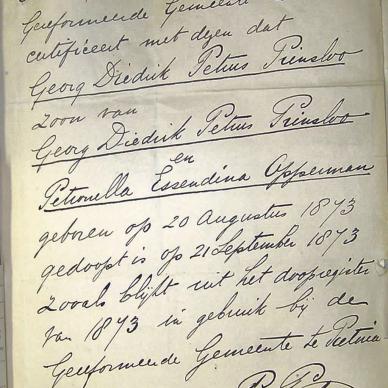 Gereformeerde Gemeente
certificeert met dezen dat
Georg Diedrik Petrus Prinsloo
zoon van
Georg Diedrik Petrus Prinsloo
en
Petronella Essendina Opperman
geboren op 20 Augustus 1873
gedoopt is op 21 September 1873
zooals blijkt uit het doopregister
van 1873 in gebruik bij de
Gereformeerde Gemeente te Pretoria